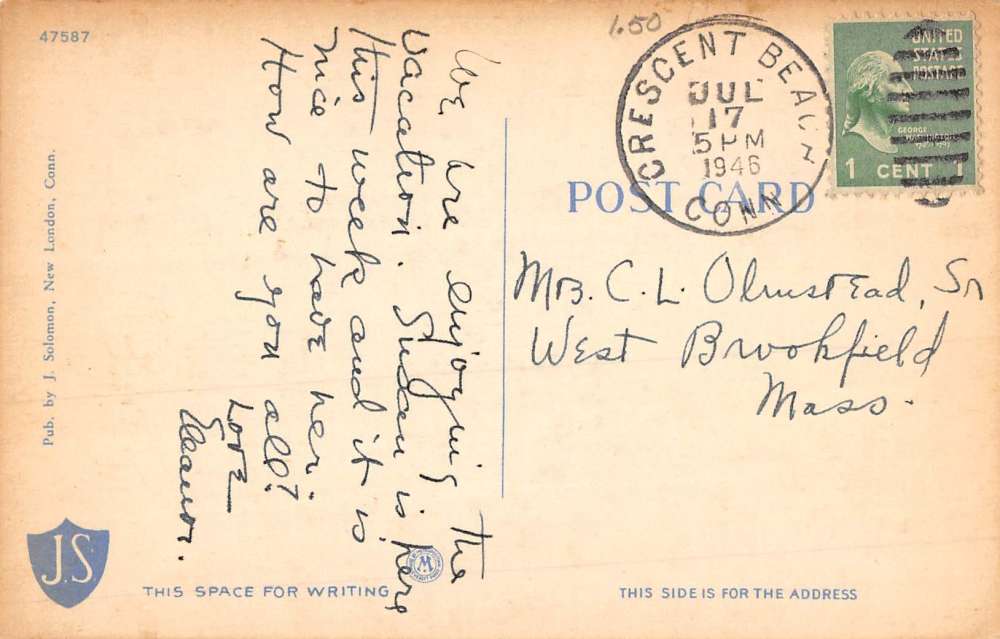 47587
1.50
CRESCENT BEACH
JUL
17
5 PM
1946
CONN
UNITED
STATES
POSTAGE
GEORGE
WASHINGTON
1 CENT 1
POST CARD
We are enjoying the
vacation. Susan is here
this week and it is
nice to have her.
How are you all?
Love
Eleanor.
Mrs. C. L. Olmstead, Sr
West Brookfield
Mass.
Pub. by J. Solomon, New London, Conn.
J.S.
THIS SPACE FOR WRITING
THIS SIDE IS FOR THE ADDRESS